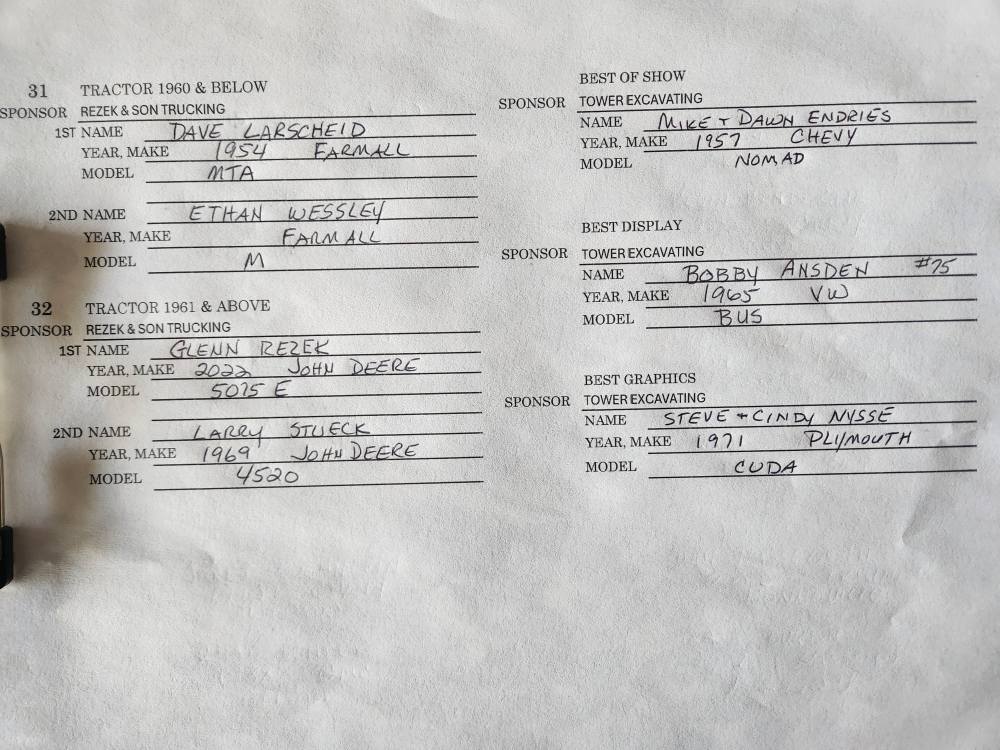 31 TRACTOR 1960 & BELOW
SPONSOR REZEK & SON TRUCKING
1ST NAME DAVE LARSCHEID
YEAR, MAKE 1954 FARMALL
MODEL MTA
2ND NAME ETHAN WESSLEY
YEAR, MAKE FARMALL
MODEL M
32 TRACTOR 1961 & ABOVE
SPONSOR REZEK & SON TRUCKING
1ST NAME GLENN REZEK
YEAR, MAKE 2022 JOHN DEERE
MODEL 5075 E
2ND NAME LARRY STUECK
YEAR, MAKE 1969 JOHN DEERE
MODEL 4520
BEST OF SHOW
SPONSOR TOWER EXCAVATING
NAME MIKE + DAWN ENDRIES
YEAR, MAKE 1957 CHEVY
MODEL NOMAD
BEST DISPLAY
SPONSOR TOWER EXCAVATING
NAME BOBBY ANSDEN #75
YEAR, MAKE 1965 VW
MODEL BUS
BEST GRAPHICS
SPONSOR TOWER EXCAVATING
NAME STEVE + CINDY NYSSE
YEAR, MAKE 1971 PLYMOUTH
MODEL CUDA